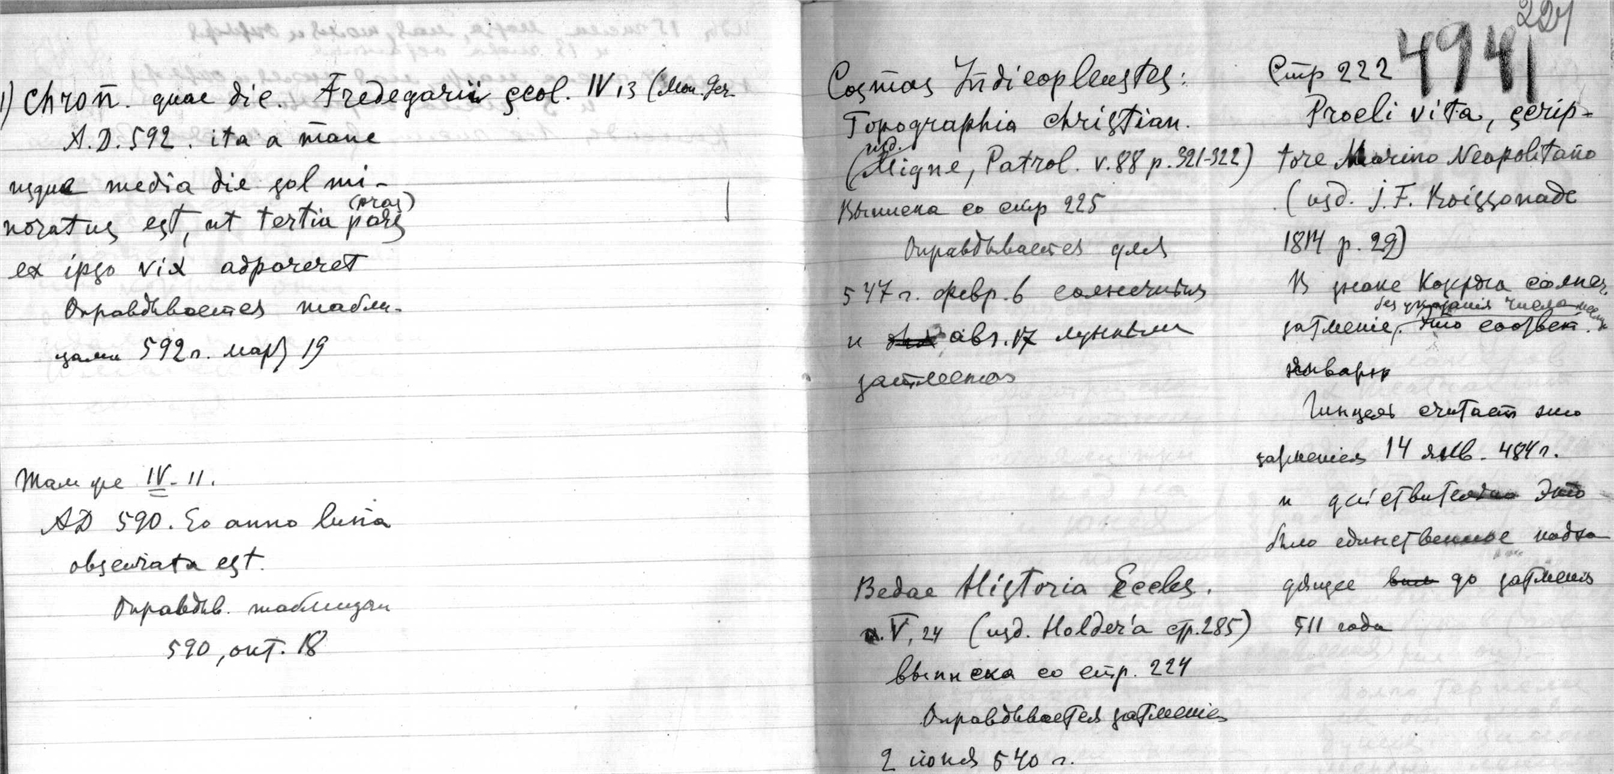 1) Chron. quae die. Fredegarii scol. IV, 13 (Mon. Ger.
A.D. 592. ita a mane
usque media die sol mi-
noratus est, ut tertia pars
(pras)
ex ipso vix adpareret
Оправдывается табли-
цами 592 г. март 19
Там же IV-11.
AD 590. Eo anno luna
obscurata est.
Оправдыв. таблицами
590, окт. 18
Cosmas Indicopleustes:
Topographia christian.
изд.
(Migne, Patrol. v. 88 p. 321-322)
Выписка со стр 225
Оправдывается для
547 г. февр. 6 солнечным
и авг. 17 лунным
затмением
Bedae Historia Eccles.
V, 24 (изд. Holder'a стр. 285)
выписка со стр. 224
Оправдывается затмение
2 июня 540 г.
224
4941
Стр 222
Procli vita, scrip-
tore Marino Neapolitano
(изд. J. F. Boissonade
1814 p. 29)
В знаке Козерога солнеч.
без указания числа
затмение, это соответ.
январю
Гинцель считает это
затмением 14 янв. 484 г.
и действительно это
было единственное подхо
дящее до затмения
511 года